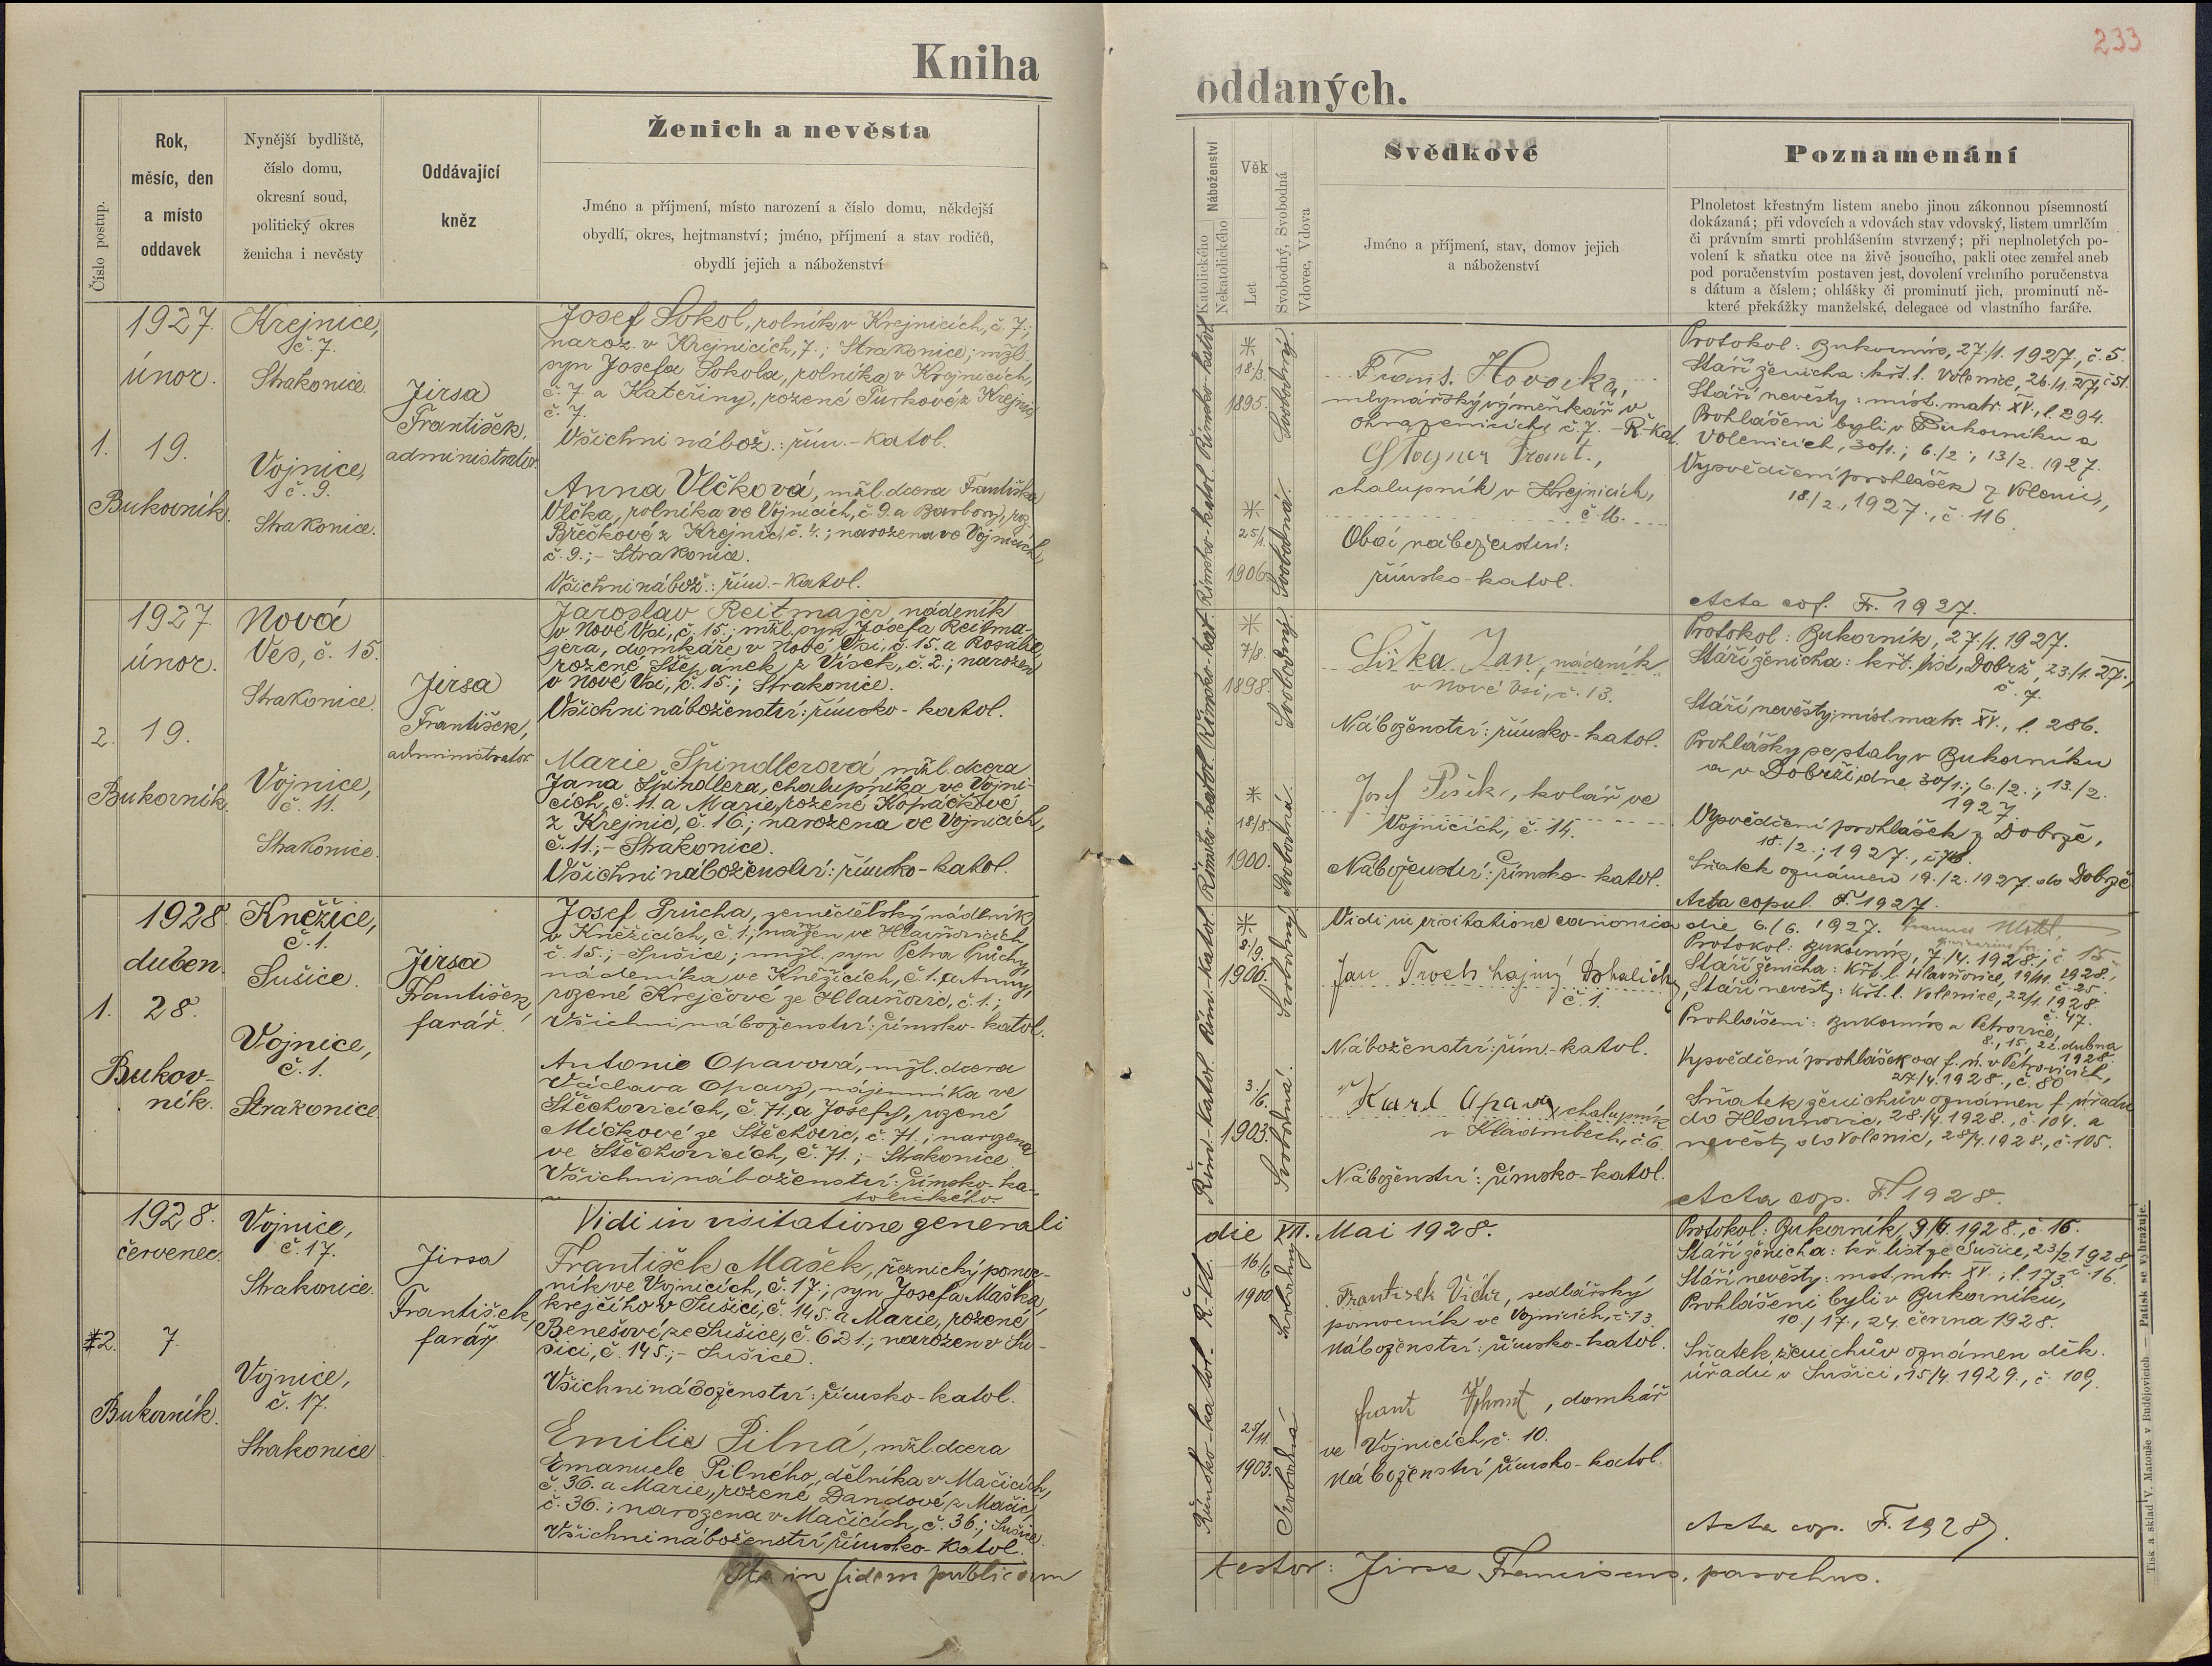 233
Kniha
oddaných.
Číslo postup.
Rok,
měsíc, den
a místo
oddavek
Nynější bydliště,
číslo domu,
okresní soud,
politický okres
ženicha i nevěsty
Oddávající
kněz
Ženich a nevěsta
Jméno a příjmení, místo narození a číslo domu, někdejší
obydlí, okres, hejtmanství; jméno, příjmení a stav rodičů,
obydlí jejich a náboženství
1927.
únor.
1. 19.
Bukovník.
Krejnice,
č. 7.
Strakonice.
Vojnice,
č. 9.
Strakonice.
Jirsa
František,
administrator.
Josef Sokol, rolník v Krejnicích, č. 7.;
naroz. v Krejnicích, 7.; Strakonice; mžl.
syn Josefa Sokola, rolníka v Krejnicích,
č. 7. a Kateřiny, rozené Turkové z Krejnic,
č. 7.
Všichni nábož.: řím.-katol.
Anna Vlčková, mžl. dcera Františka
Vlčka, rolníka ve Vojnicích, č. 9. a Barbory, roz.
z Krejnic, č. 4.; narozena ve Vojnicích,
č. 9.; - Strakonice.
Všichni nábož.: řím.-katol.
1927.
únor.
2. 19.
Bukovník.
Nová
Ves, č. 15.
Strakonice.
Vojnice,
č. 11.
Strakonice.
Jirsa
František,
administrator
Jaroslav Reitmajer, nádeník
v Nové Vsi, č. 15.; mžl. syn Josefa Reitma-
jera, domkáře v Nové Vsi, č. 15. a Rosalie,
rozené Štěpánek z Vísek, č. 2.; narozen
v Nové Vsi, č. 15.; Strakonice.
Všichni náboženství: římsko-katol.
Marie Špindlerová mžl. dcera
Jana Špindlera, chalupníka ve Vojni-
cích, č. 11. a Marie, rozené Kopáčkové
z Krejnic, č. 16.; narozena ve Vojnicích,
č. 11.; - Strakonice.
Všichni náboženství: římsko-katol.
1928.
duben.
1. 28.
Bukov-
ník.
Kněžice,
č. 1.
Sušice.
Vojnice,
č. 1.
Strakonice.
Jirsa
František,
farář.
Josef Průcha, zemědělský nádeník
v Kněžicích, č. 1.; ve Hlavňovicích,
č. 15.; - Sušice; mžl. syn Petra Průchy,
nádeníka ve Kněžicích, č. 1. a Anny,
rozené Krejčové ze Hlavňovic, č. 1.;
Všichni náboženství: římsko-katol.
Antonie Opavová, mžl. dcera
Václava Opavy, nájemníka ve
Štěchovicích, č. 71., a Josefy, rozené
Míčkové ze Štěchovic, č. 71.; narozena
ve Štěchovicích, č. 71.; - Strakonice
Všichni náboženství: římsko-ka-
tolického.
1928.
červenec.
2. 7.
Bukovník.
Vojnice,
č. 17.
Strakonice.
Vojnice,
č. 17.
Strakonice
Jirsa
František,
farář.
Vidi in visitatione generali
František Mašek, řeznický pomoc-
ník ve Vojnicích, č. 17.; syn Josefa Maška,
krejčího v Sušici, č. 145. a Marie, rozené
Benešové ze Sušice, č. 621.; narozen v Su-
šici, č. 145.; - Sušice.
Všichni náboženství: římsko-katol.
Emilie Pilná, mžl. dcera
Emanuele Pilného, dělníka v Mačicích,
č. 36. a Marie, rozené Dandové z Mačic,
č. 36.; narozena v Mačicích, č. 36.; Sušice.
Všichni náboženství římsko-katol.
Ita in fidem publicam
Náboženství
Katolického
Nekatolického
Věk
Let
Svobodný, Svobodná
Vdovec, Vdova
Svědkové
Jméno a příjmení, stav, domov jejich
a náboženství
Poznamenání
Plnoletost křestným listem anebo jinou zákonnou písemností
dokázaná; při vdovcích a vdovách stav vdovský, listem umrlčím
či právním smrti prohlášením stvrzený; při neplnoletých po-
volení k sňatku otce na živě jsoucího, pakli otec zemřel aneb
pod poručenstvím postaven jest, dovolení vrchního poručenstva
s dátum a číslem; ohlášky či prominutí jich, prominutí ně-
které překážky manželské, delegace od vlastního faráře.
Římsko-katol.
*
18/3.
1895.
Svobodný.
Římsko-katol.
*
25/1.
1906.
Svobodná.
Frant. Hovorka,
mlynářský výměnkář v
Ohrazenicích, č. 7. - Ř.-kat.
Frant.,
chalupník v Krejnicích,
č. 16.
Obojí náboženství:
římsko-katol.
Protokol: Bukovník, 27./1. 1927., č. 5.
Stáří ženicha: křt. l. Volenice, 26./1. 27., č. 51.
Stáří nevěsty: míst. matr. XV., l. 294.
Prohlášeni byli v Bukovníku a
Volenicích, 30/1.; 6./2.; 13/2. 1927.
Vysvědčení prohlášek z Volenic,
18./2., 1927., č. 116.
Acta cop. F. 1927.
Římsko-kat.
*
7/8.
1898.
Svobodný.
Římsko-katol.
*
18/8.
1900.
Svobodná.
Liška Jan, nádeník
v Nové Vsi, č. 13.
Náboženství: římsko-katol.
Josef Pišek, kolář ve
Vojnicích, č. 14.
Náboženství: římsko-katol.
Protokol: Bukovník, 27./1. 1927.
Stáří ženicha: křt. list, Dobrš, 23./1. 27.,
č. 7.
Stáří nevěsty: míst. matr. XV., l. 286.
Prohlášky se staly v Bukovníku
a v Dobrši dne 30/1.; 6./2.; 13./2.
1927.
Vysvědčení prohlášek z Dobrše,
18./2.; 1927.,
Sňatek oznámen 19./2. 1927. do Dobrše
Acta copul. F. 1927.
Vidi in visitatione canonica die 6./6. 1927.
Řím.-katol.
*
8./9.
1906.
Svobodný
Řím.-katol.
3./6.
1903.
Svobodná.
Jan Troch hajný
č. 1.
Náboženství: řím.-katol.
Karel Opava, chalupník
v Kladrubech, č. 6.
Náboženství: římsko-katol.
Protokol: Bukovník, 7./4. 1928., č. 15
Stáří ženicha: Křt. l. Hlavňovice, 1928.,
č. 25.
Stáří nevěsty: Křt. l. Volenice, 22/1. 1928.
č. 47.
Prohlášeni: Bukovník a Petrovice,
8., 15., 22. dubna
1928.
Vysvědčení prohlášek od f. ú. v Petrovicích,
27/4. 1928., č. 80
Sňatek ženichův oznámen f. úřadu
do Hlavňovic, 28./4. 1928., č. 104. a
nevěsty do Volenic, 28/4. 1928., č. 105.
Acta cop. F. 1928.
die VII. Mai 1928.
Římsko-katol.
R.-kt.
16/6
1900
Svobodný
25/11.
1903.
Svobodná.
František Vichr, sedlářský
pomocník ve Vojnicích, č. 13.
náboženství: římsko-katol.
frant , domkář
ve Vojnicích, č. 10.
náboženství římsko-katol.
Protokol: Bukovník, 9./6. 1928., č. 16.
Stáří ženicha: kř. list ze Sušice, 23/2 1928,
č. 16.
Stáří nevěsty: mst. mtr. XV.; l. 173.
Prohlášeni byli v Bukovníku,
10., 17., 24. června 1928.
Sňatek ženichův oznámen děk.
úřadu v Sušici, 15/4. 1929., č. 109.
Acta cop. F. 1928.
testor: Jirsa Franciscus, parochus.
Tisk a sklad V. Matouše v Budějovicích. — Patisk se vyhražuje.